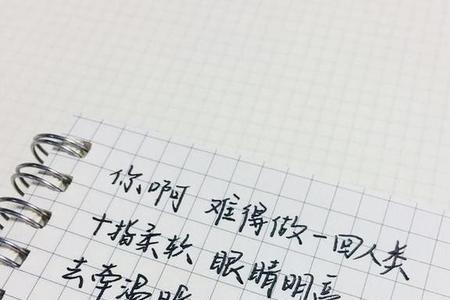 你啊 难得做一回人类
十指柔软 眼睛明亮
去牵